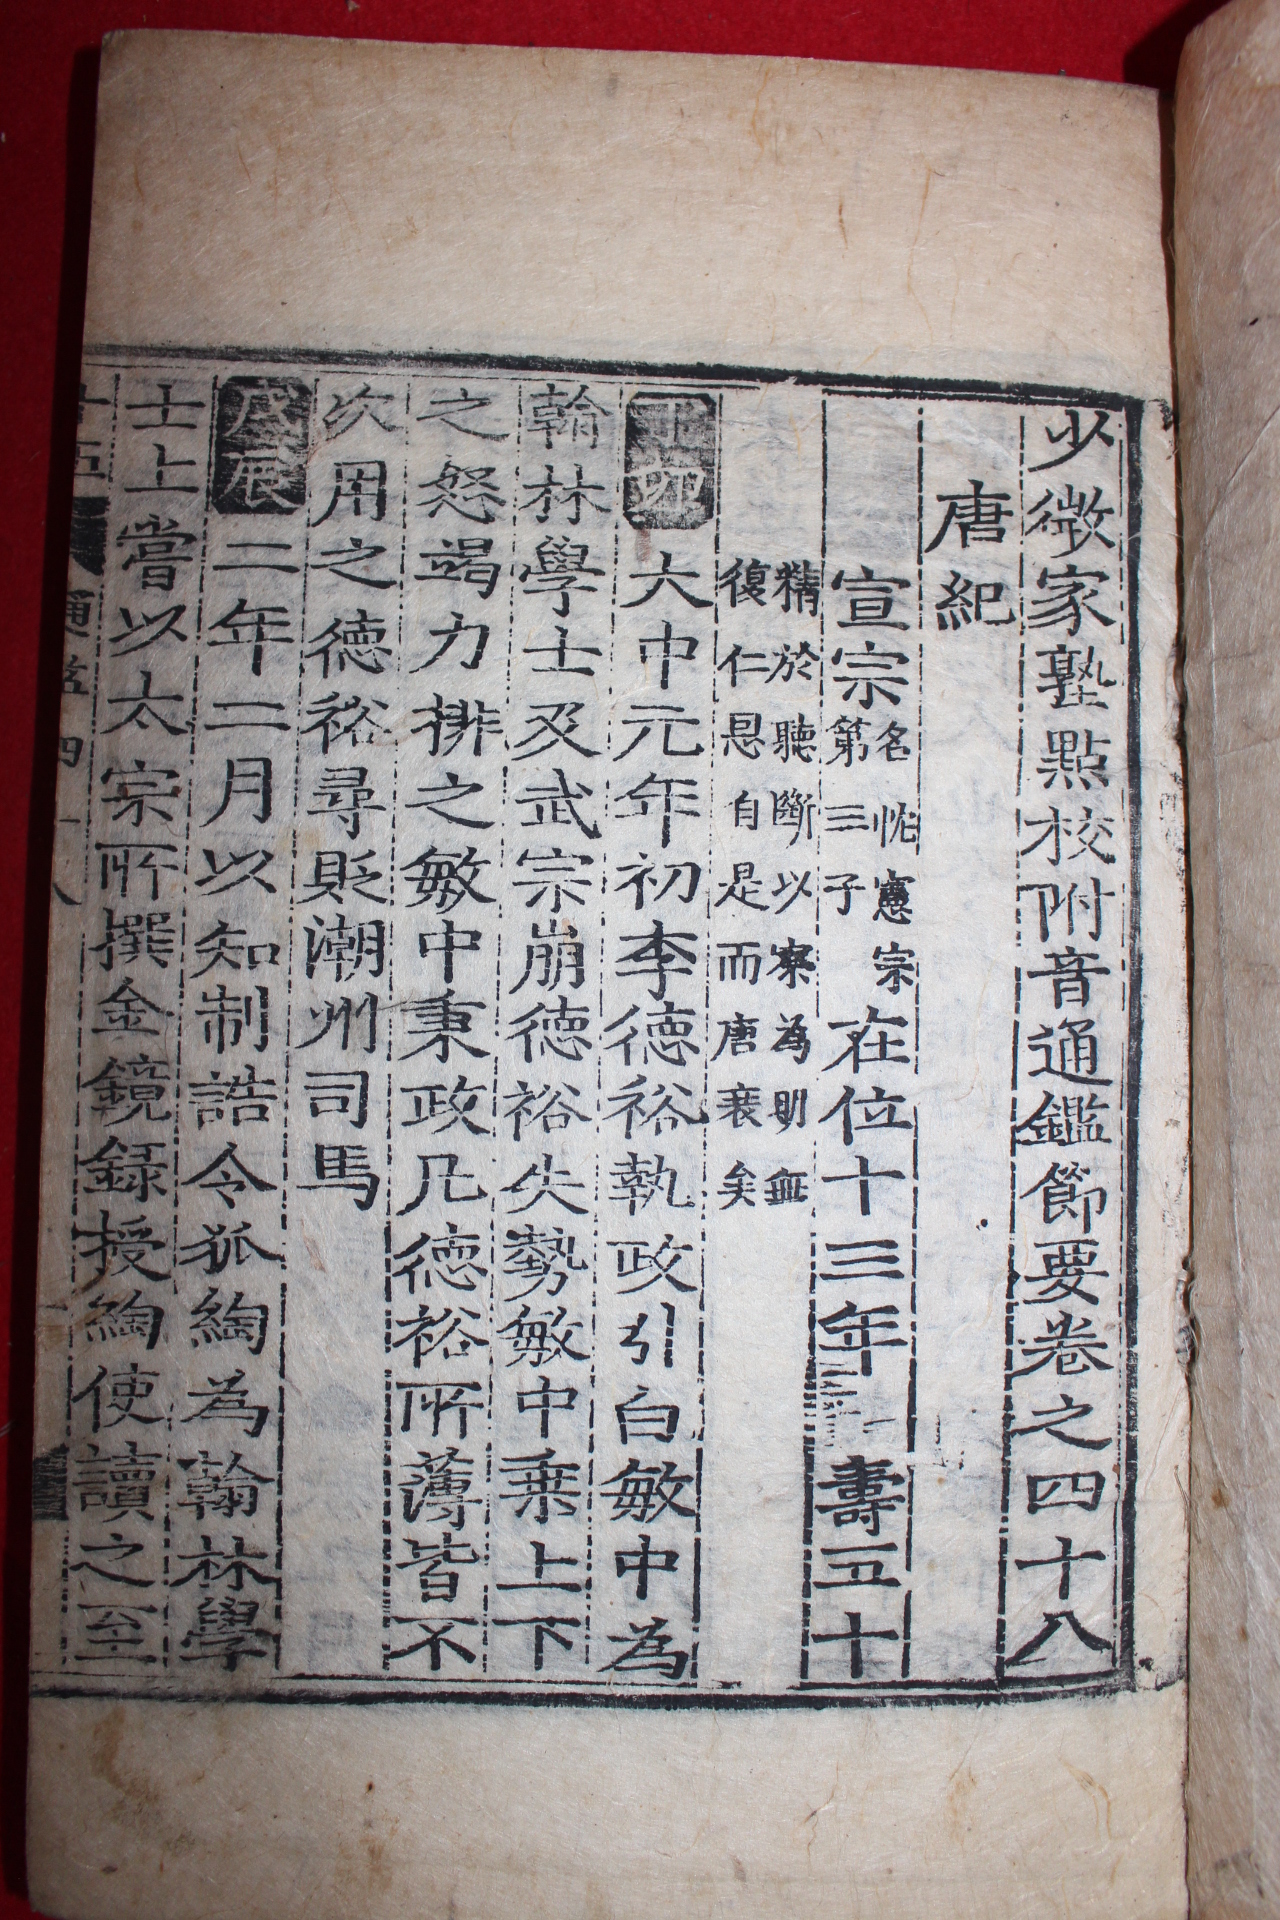 少微家塾點校附音通鑑節要卷之四十八
唐紀
宣宗名忱憲宗第三子在位十三年壽五十
精於聽斷以察為明無
復仁恩自是而唐衰矣
丁卯大中元年初李德裕執政引白敏中為
翰林學士及武宗崩德裕失勢敏中乗上下
之怒竭力排之敏中秉政凡德裕所薄皆不
次用之德裕尋貶潮州司馬
戊辰二年二月以知制誥令狐綯為翰林學
士上嘗以太宗所撰金鏡録授綯使讀之至
通鑑四十八